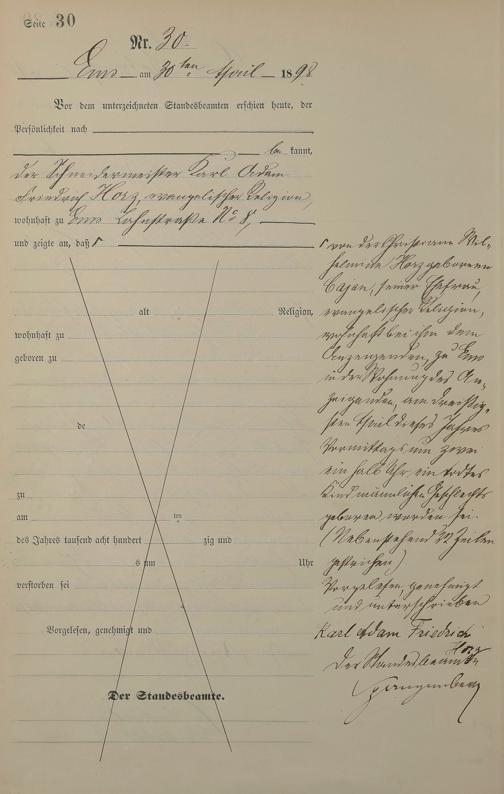 Seite 30
Nr. 30.
Ems am 30ten April 1898
Vor dem unterzeichneten Standesbeamten erschien heute, der
Persönlichkeit nach
be kannt,
der Schneidermeister Karl Adam
Friedrich Horz, evangelischer Religion,
wohnhaft zu Ems Lahnstraße No 8,
und zeigte an, daß
von der Wil-
helmine Horz geborenen
seiner Ehefrau,
evangelischer Religion,
wohnhaft bei ihm dem
Anzeigenden, zu Ems
in der Wohnung des An-
zeigenden, am dreißig-
sten April dieses Jahres
Vormittags um zwei
ein halb Uhr, ein todtes
Kind männlichen Geschlechts
geboren worden sei.
(Nebenstehend 22 Zeilen
gestrichen)
Vorgelesen, genehmigt
und unterschrieben
Karl Adam Friedrich
Horz
Der Standesbeamte
Spangenberg
alt Religion,
wohnhaft zu
geboren zu
de
zu
am ten
des Jahres tausend acht hundert zig und
s um Uhr
verstorben sei
Vorgelesen, genehmigt und
Der Standesbeamte.